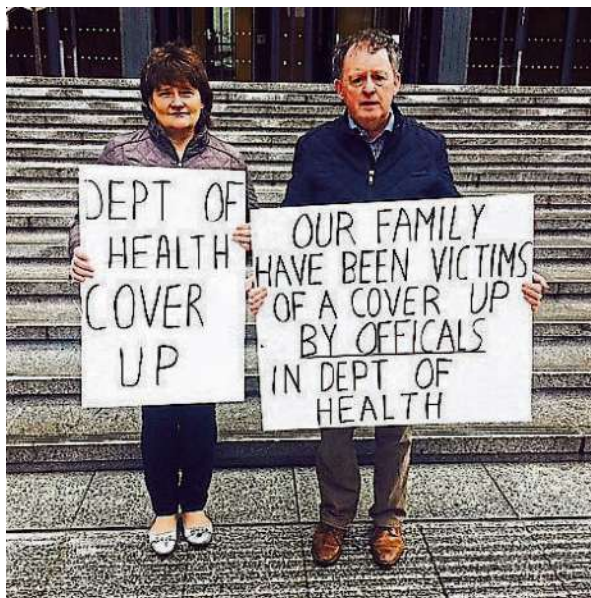 DEPT OF
HEALTH
COVER
UP
OUR FAMILY
HAVE BEEN VICTIMS
OF A COVER UP
BY OFFICALS
IN DEPT OF
HEALTH